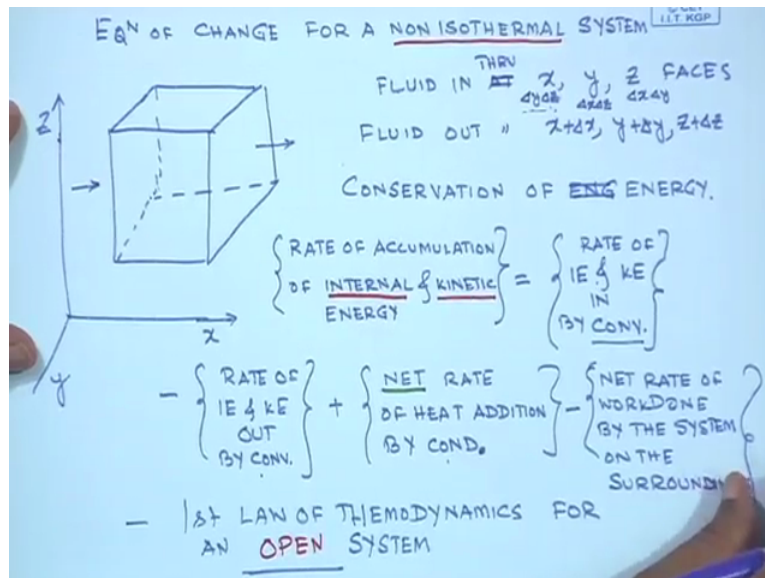 EQN OF CHANGE FOR A NON ISOTHERMAL SYSTEM
I.I.T. KGP
Z
x
y
THRU
FLUID IN x, y, z FACES
ΔyΔz ΔxΔz ΔxΔy
FLUID OUT " x+Δx, y+Δy, z+Δz
CONSERVATION OF ENG ENERGY.
{RATE OF ACCUMULATION OF INTERNAL & KINETIC ENERGY} = {RATE OF IE & KE IN BY CONV.}
- {RATE OF IE & KE OUT BY CONV.} + {NET RATE OF HEAT ADDITION BY COND.} - {NET RATE OF WORKDONE BY THE SYSTEM ON THE SURROUNDIN}
- 1st LAW OF THEMODYNAMICS FOR
AN OPEN SYSTEM